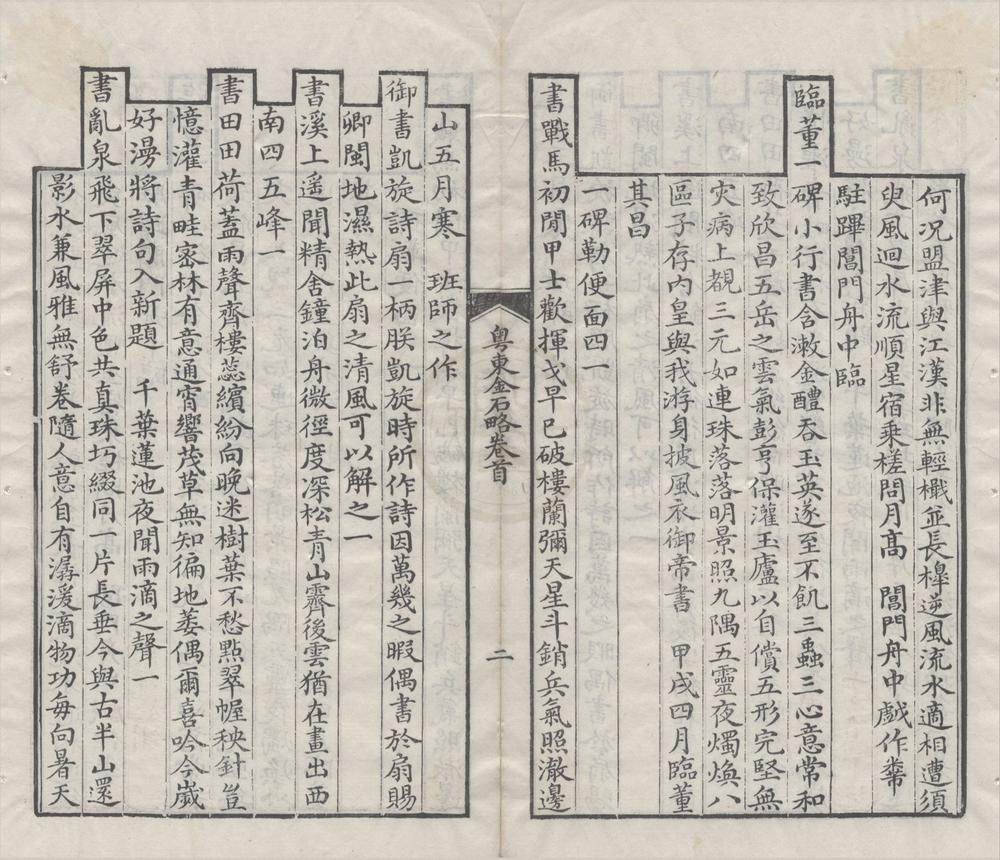 何况盟津與江漢非無輕檝並長橰逆風流水適相遭須
臾風迴水流順星宿乗槎問月高　閶門舟中戯作䔰
駐蹕閶門舟中臨
臨董一
碑小行書含漱金醴吞玉英遂至不飢三蟲三心意常和
致欣昌五岳之雲氣彭亨保灌玉廬以自償五形完堅無
灾病上覩三元如連珠落落明景照九隅五靈夜燭煥八
區子存内皇與我游身披風衣御帝書　甲戌四月臨董
其昌
一碑勒便面四一
書戰馬初閒甲士歡揮戈早已破樓蘭彌天星斗銷兵氣照澈邊
粤東金石略卷首
二
山五月寒　班師之作
御書凱旋詩扇一柄朕凱旋時所作詩因萬幾之暇偶書於扇賜
卿閩地濕熱此扇之清風可以解之一
書溪上遥聞精舍鐘泊舟微徑度深松青山霽後雲猶在畫出西
南四五峰一
書田田荷蓋雨聲齊樓蕊繽紛向晚迷樹葉不愁㸃翠幄秧針豈
憶灌青畦宻林有意通宵響茂草無知徧地萋偶爾喜吟今歲
好漫將詩句入新題　千葉蓮池夜聞雨滴之聲一
書亂泉飛下翠屏中色共真珠巧綴同一片長垂今與古半山還
影水兼風雅無舒卷隨人意自有潺湲滴物功毎向暑天